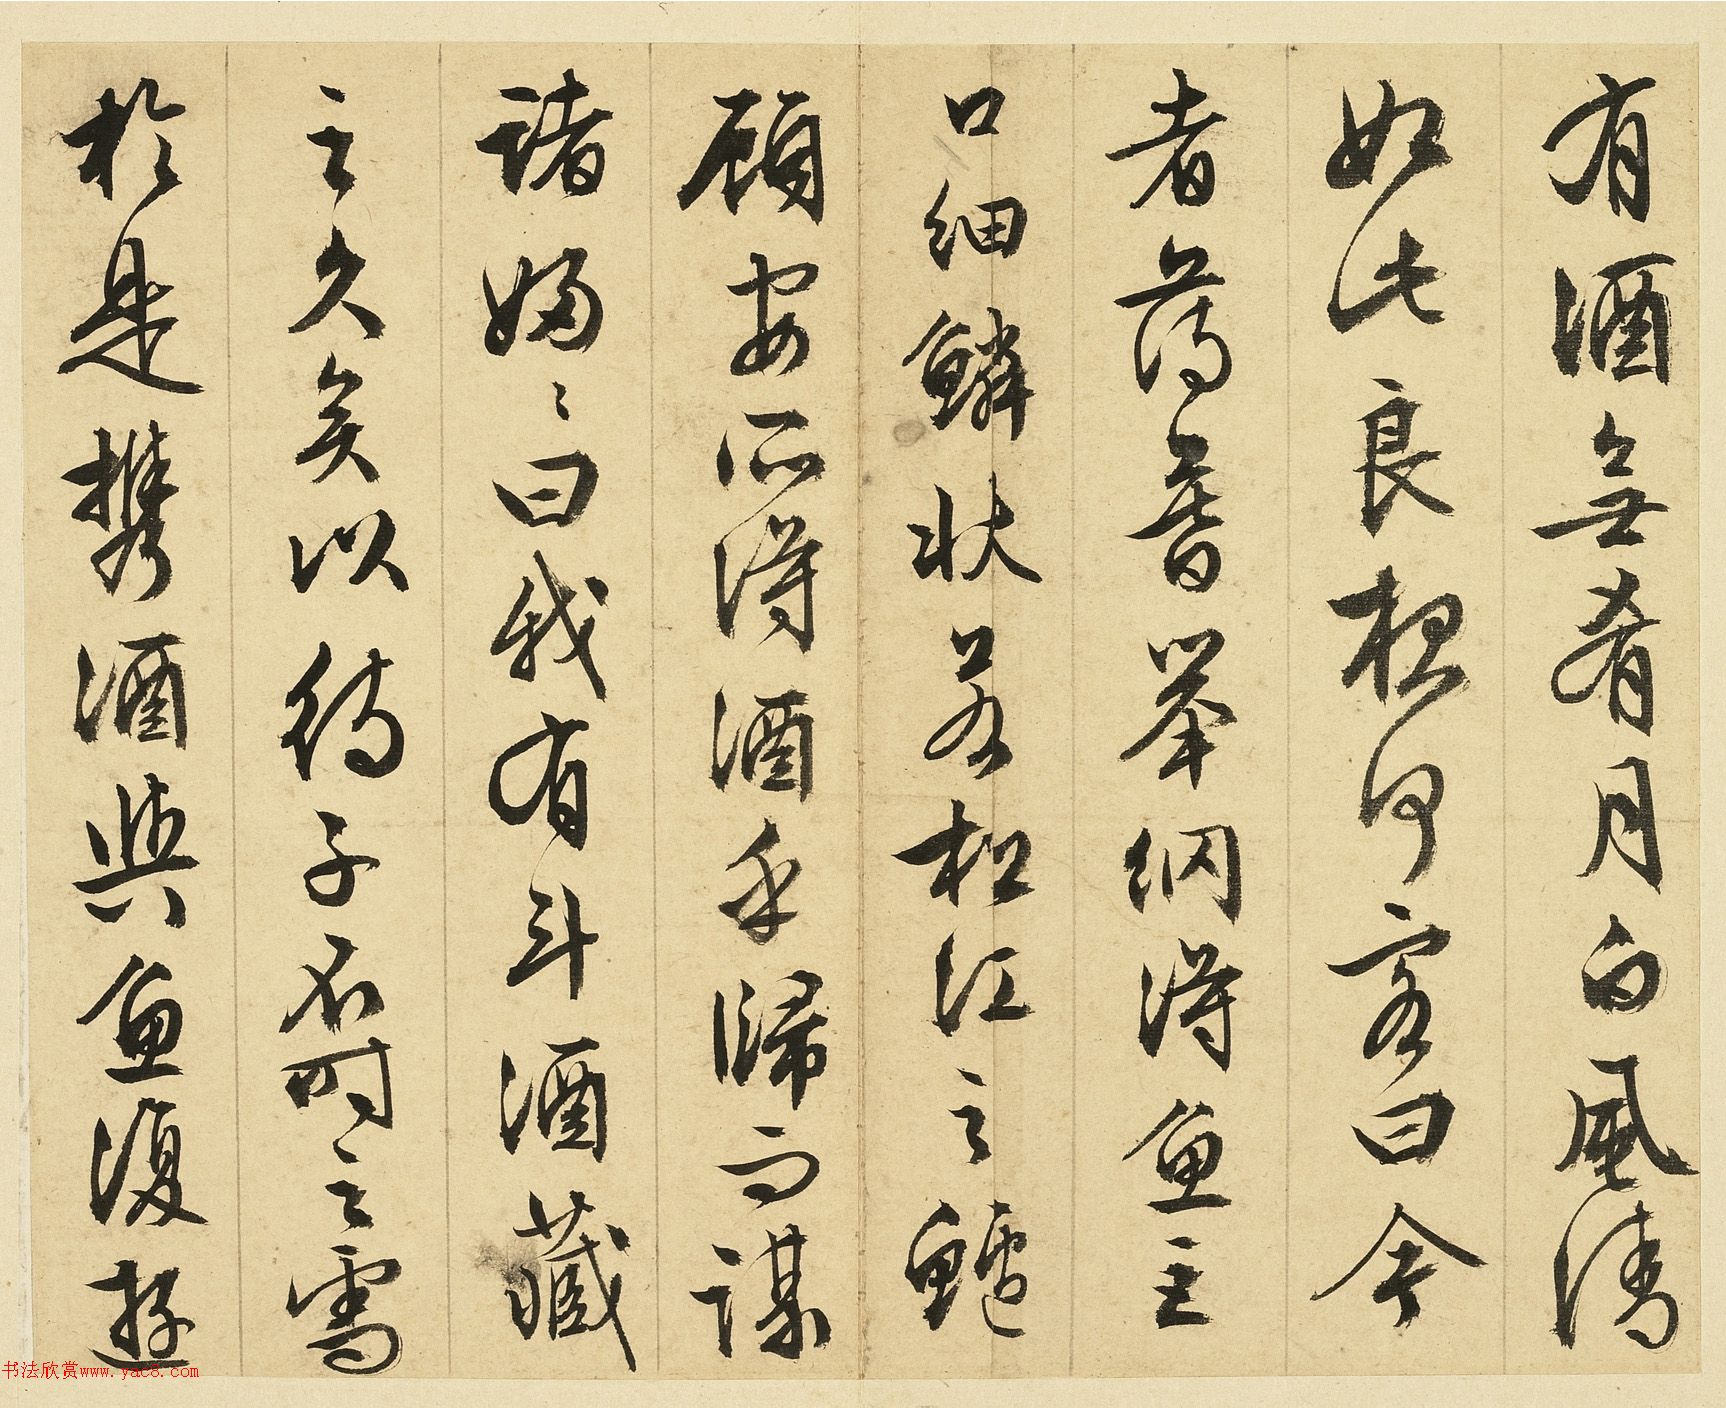 有酒無肴月白風清
如此良何客曰今
者薄暮舉網得魚巨
口細鱗狀若松江之鱸
顧安所得酒乎歸而謀
諸婦〻曰我有斗酒藏
之久矣以待子不時之需
於是攜酒與魚復遊
书法欣赏www.yac8.com